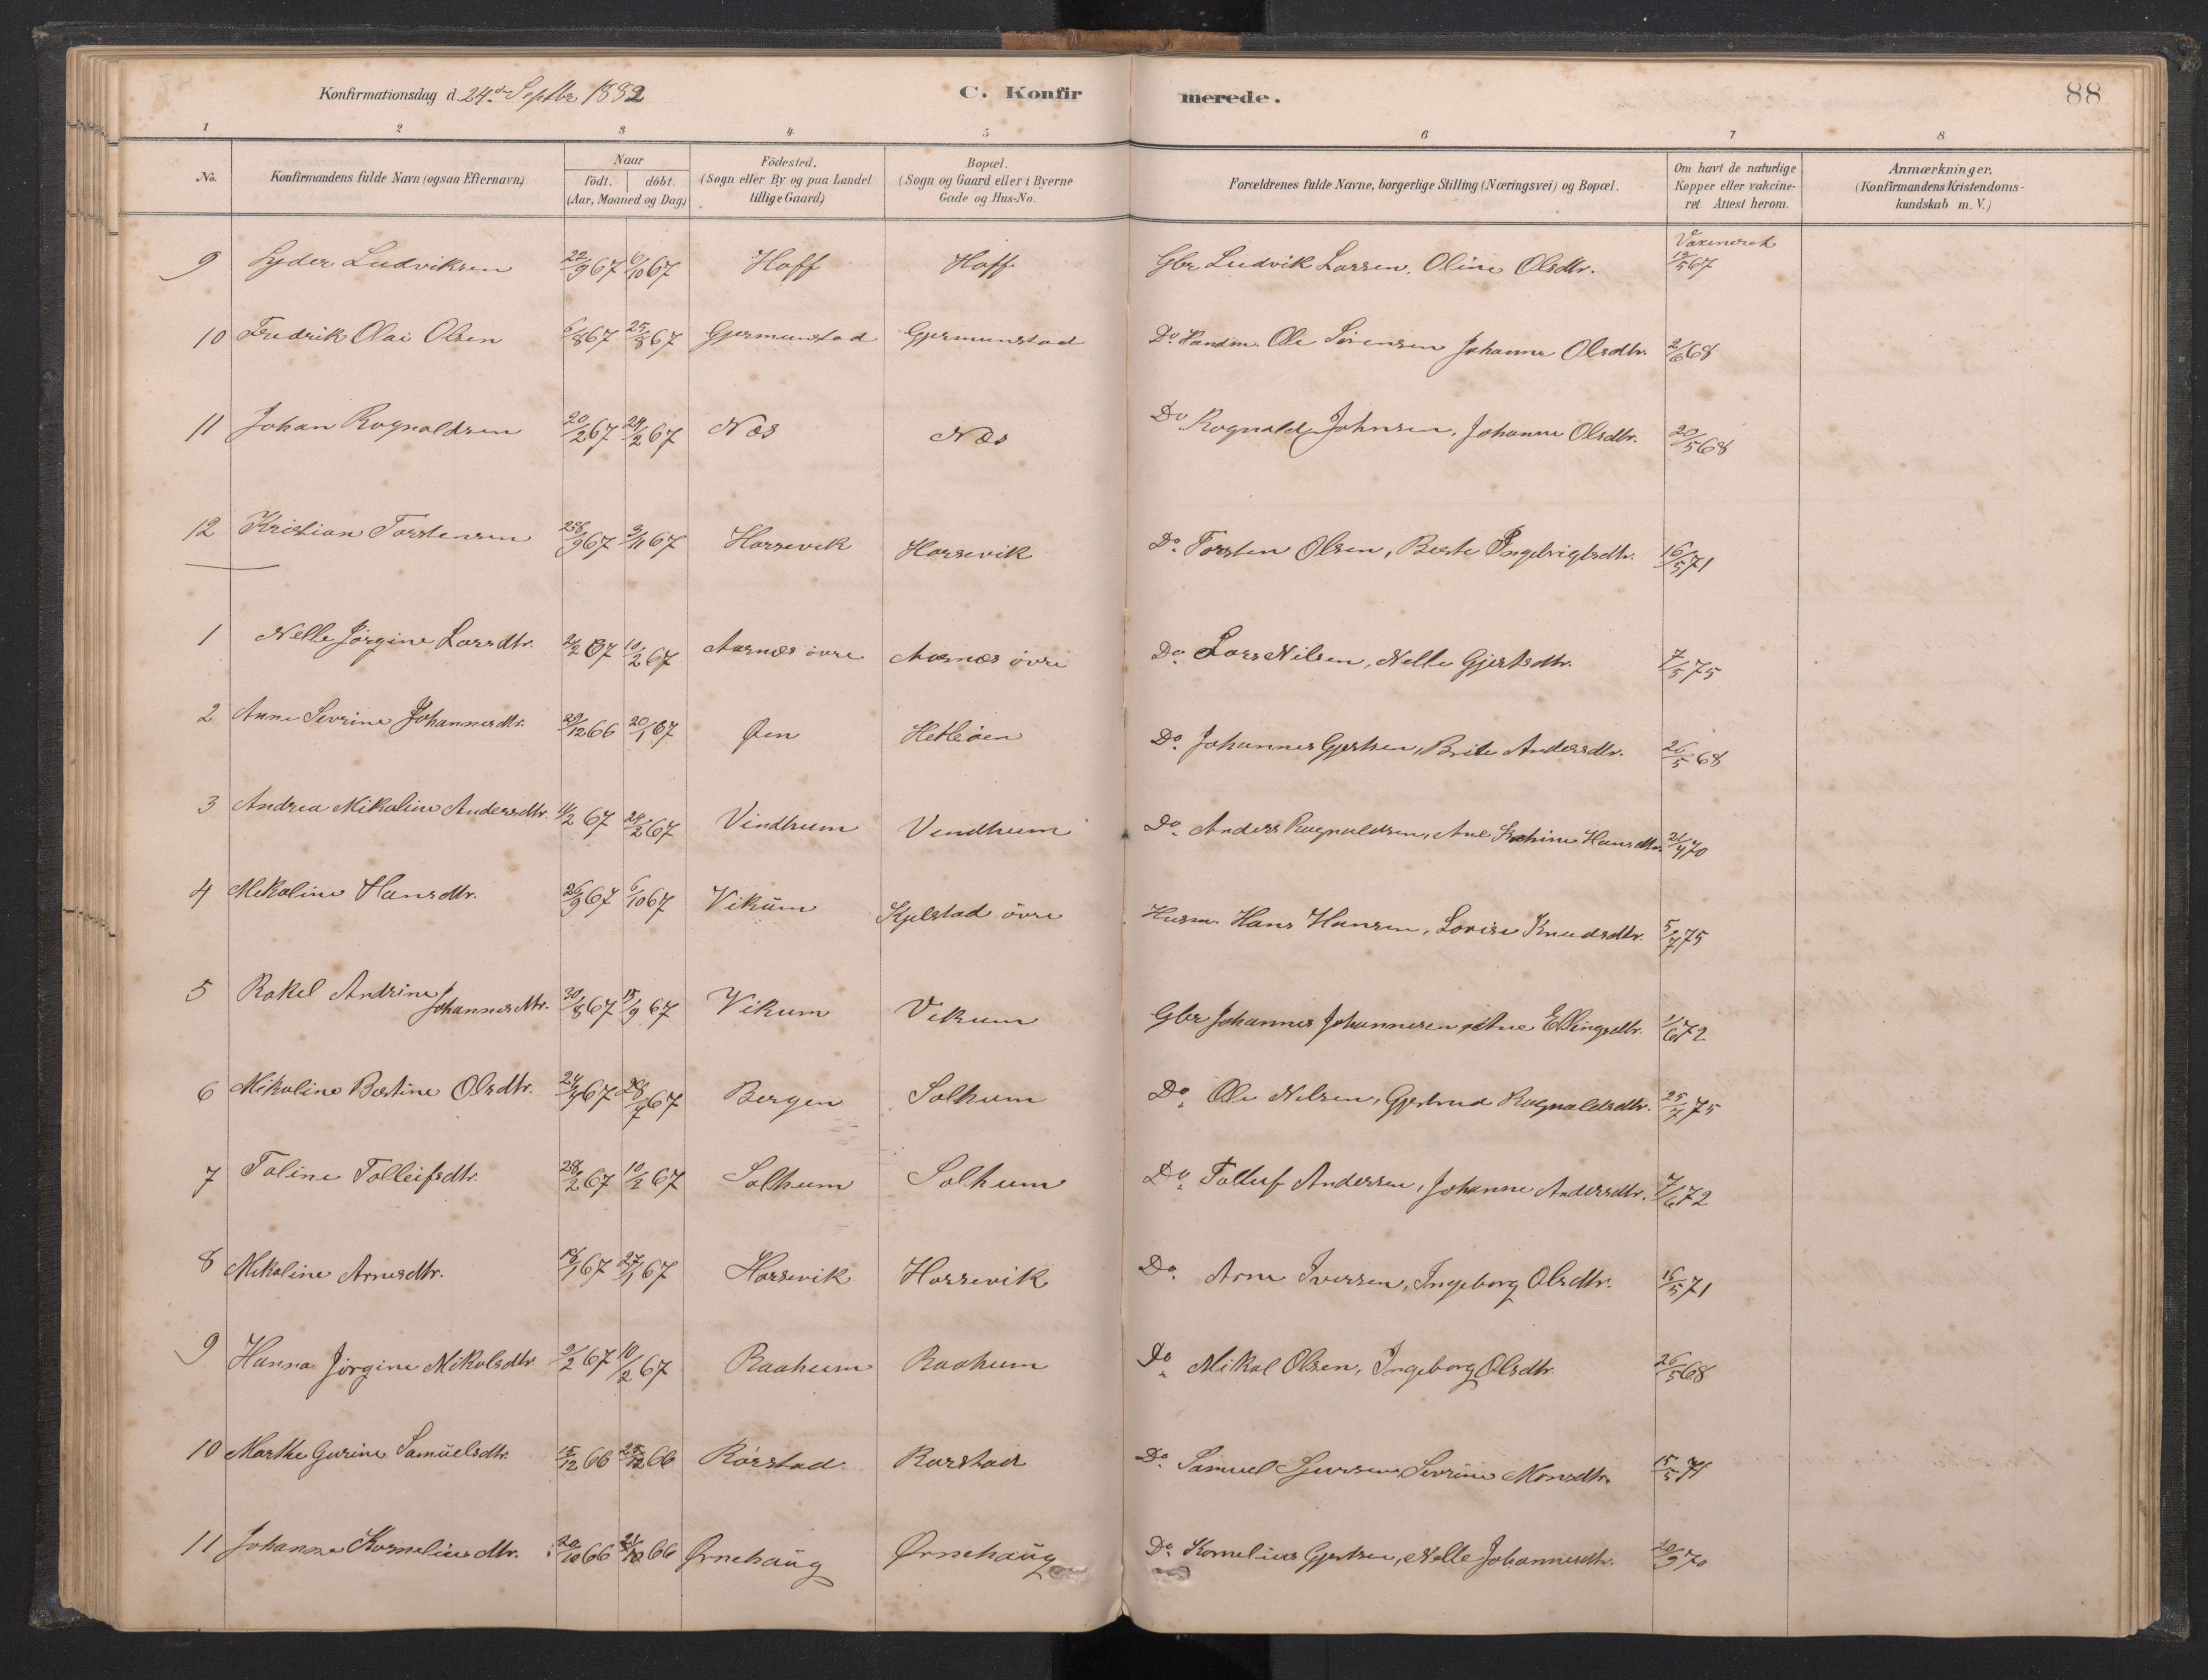 Konfirmationsdag d. 24de Septbr 1882 C. Konfirmerede. 88
1 2 3 4 5 6 7 8
No. Konfirmandens fulde Navn (ogsaa Efternavn) Naar födt. döbt. (Aar, Maaned og Dag) Födested. (Sogn eller By og paa Landet tillige Gaard) Bopæl. (Sogn og Gaard eller i Byerne Gade og Hus-No. Forældrenes fulde Navne, borgerlige Stilling (Næringsvei) og Bopæl. Om havt de naturlige Kopper eller vakcineret Attest herom. Anmærkninger. (Konfirmandens Kristendomskundskab m. V.)
9 Lyder Ludviksen 22/9 67 6/10 67 Hoff Hoff Gbr Ludvik Larsen, Oline Olsdtr. Vaxineret 67
10 Fredrik Olai Olsen 6/8 67 25/8 67 Gjermunstad Gjermunstad Do. Ole Sörensen Johanne Olsdtr. 2/6 68
11 Johan Rognaldsen 20/2 67 24/2 67 Næs Næs Do Rognald Johnsen, Johanne Olsdtr. 20/5 68
12 Kristian Torstensen 28/9 67 3/11 67 Harsevik Harsevik Do. Torsten Olsen, Berte Ingebrigtsdtr. 16/5 71
1 Nelle Jörgine Larsdtr. 2/2 67 10/2 67 Aarnæs övre Aarnæs övre Do. Lars Nilsen, Nelle Gjertsdtr. 7/5 75
2 Anne Sevrine Johannesdtr. 29/12 66 20/1 67 Øen Hetleöen Do. Johannes Gjertsen, Brite Andersdtr. 26/5 68
3 Andrea Mikaline Andersdtr. 11/2 67 24/2 67 Vindhum Vindhum Do. Anders Rognaldsen, Ane Hansdtr. 21/4 70
4 Mikaline Hansdtr. 26/9 67 6/10 67 Vikum Kjelstad övre Husm. Hans Hansen, Lovise Knudsdtr. 5/7 75
5 Rakel Andrine Johannesdtr. 30/8 67 15/9 67 Vikum Vikum Gbr Johannes Johannesen, Ane Ellingsdtr. 1/6 72
6 Mikaline Bertine Olsdtr. 24/7 67 28/7 67 Bergen Solhum Do. Ole Nilsen, Gjertrud Rognaldsdtr. 25/7 75
7 Taline Tolleifsdtr. 28/2 67 10/2 67 Solhum Solhum Do. Tolleif Andersen, Johanne Andersdtr. 7/6 72
8 Mikaline Arnesdtr. 18/1 67 27/1 67 Harsevik Harsevik Do. Arne Iversen, Ingeborg Olsdtr. 16/5 71
9 Hanna Jörgine Mikalsdtr. 2/2 67 10/2 67 Raahum Raahum Do. Mikal Olsen, Ingeborg Olsdtr. 26/5 68
10 Marthe Gurine Samuelsdtr. 15/12 66 66 Rörstad Rorstad Do. Samuel Sjursen, Sevrine Monsdtr. 15/5 71
11 Johanne Korneliusdtr. 20/10 66 66 Ørnehaug Ørnehaug Do. Kornelius Gjertsen, Nelle Johannesdtr. 20/9 70